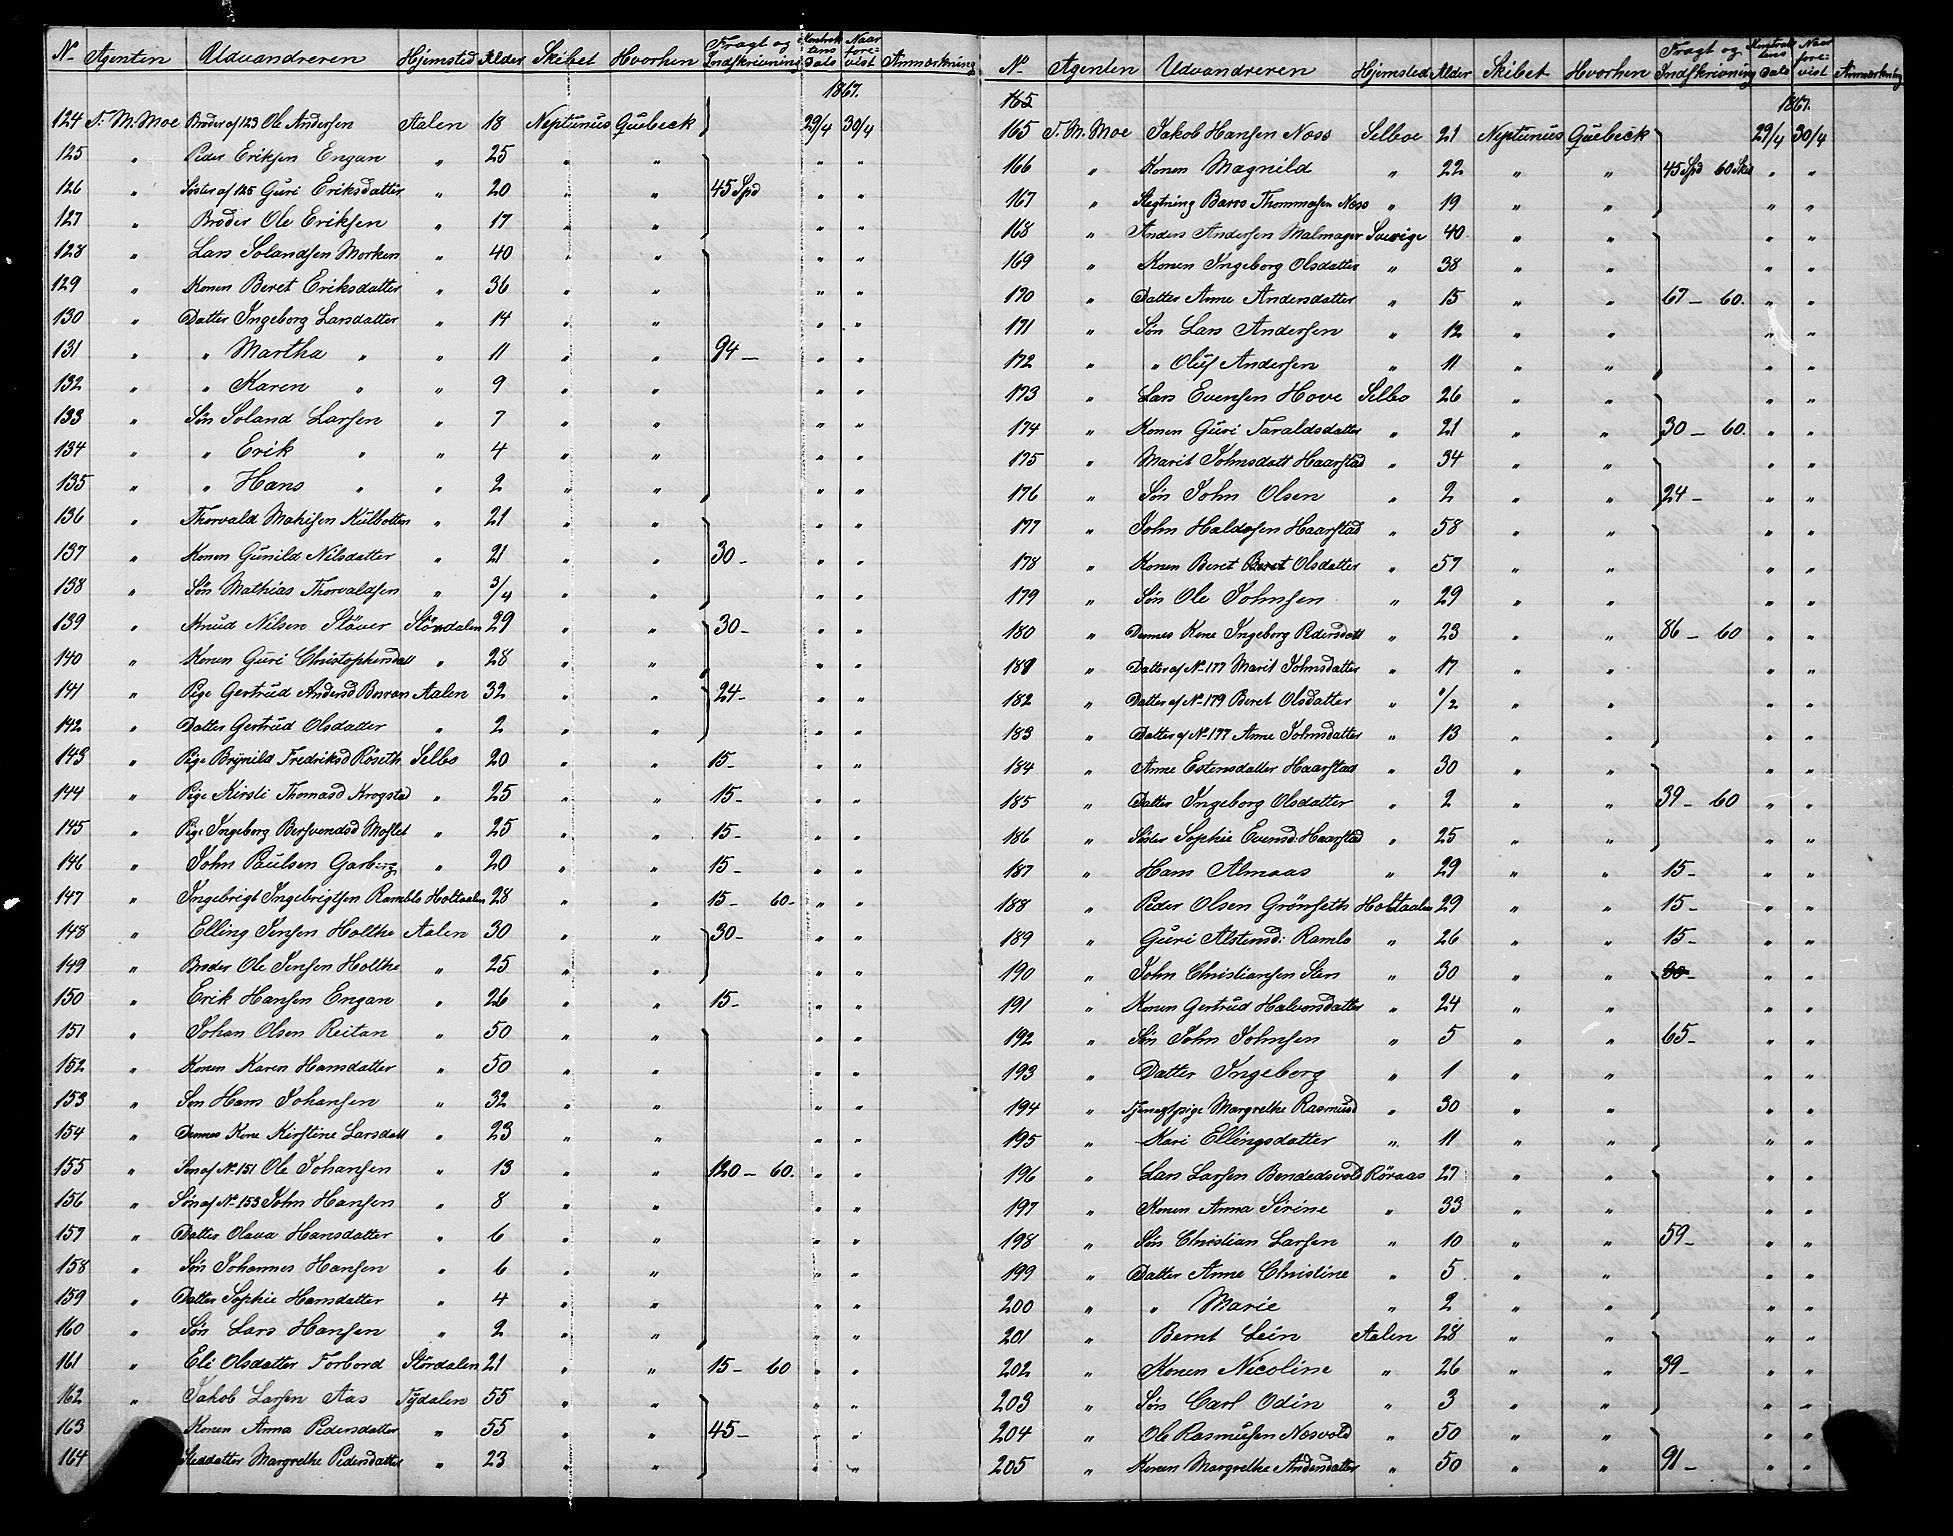 No Agenten Udvandreren Hjemsted Alder Skibet Hvorhen Fragt og Indskrivning Kontraktens Dato Naar forevist Anmærkning
1867.
124 T. M. Moe Broder af 123 Ole Andersen Aalen 18 Neptunus Quebeck 29/4 30/4
125 " Peder Eriksen Engan " 25 " " " "
126 " Søster af 125 Guri Eriksdatter " 20 " " 45 Spd " "
127 " Broder Ole Eriksen " 17 " " " "
128 " Lars Solandsen Morken " 40 " " " "
129 " Konen Beret Eriksdatter " 36 " " " "
130 " Datter Ingeborg Larsdatter " 14 " " " "
131 " " Martha " " 11 " " 94 — " "
132 " " Karen " " 9 " " " "
133 " Søn Soland Larsen " 7 " " " "
134 " " Erik " " 4 " " " "
135 " " Hans " " 2 " " " "
136 " Thorvald Mathisen Kulbotten " 21 " " " "
137 " Konen Gunild Nilsdatter " 21 " " 30 – " "
138 " Søn Mathias Thorvaldsen " 3/4 " " " "
139 " Knud Nilsen Stöver Stördalen 29 " " 30 – " "
140 " Konen Guri Christophersdatt " 28 " " " "
141 " Pige Gertrud Andersd Aalen 32 " " 24 – " "
142 " Datter Gertrud Olsdatter " 2 " " " "
143 " Pige Brynild Fredriksd Röseth Selbo 20 " " 15 – " "
144 " Pige Kirsti Thomasd Krogstad " 25 " " 15 – " "
145 " Pige Ingeborg Bersvendsd Moslet " 25 " " 15 – " "
146 " John Paulsen Garberg " 20 " " 15 – " "
147 " Ingebrigt Ingebrigtsen Ramblo Holtaalen 28 " " 15 – 60 – " "
148 " Elling Jensen Holthe Aalen 30 " " 30 – " "
149 " Broder Ole Jensen Holthe " 25 " " " "
150 " Erik Hansen Engan " 26 " " 15 – " "
151 " Johan Olsen Reitan " 50 " " " "
152 " Konen Karen Hansdatter " 50 " " " "
153 " Søn Hans Johansen " 32 " " " "
154 " Dennes Kone Kirstine Larsdatt " 23 " " " "
155 " Søn af No 151 Ole Johansen " 13 " " 120 – 60. " "
156 " Søn af No 153 John Hansen " 8 " " " "
157 " Datter Olava Hansdatter " 6 " " " "
158 " Søn Johannes Hansen " 6 " " " "
159 " Datter Sophie Hansdatter " 4 " " " "
160 " Søn Lars Hansen " 2 " " " "
161 " Eli Olsdatter Forbord Stördalen 21 " " 15 – 60 " "
162 " Jakob Larsen Aas Tydalen 55 " " " "
163 " Konen Anna Pedersdatter " 55 " " 45 – " "
164 Steddatter Margrethe Pedersdatter " 23 " " " "
No Agenten Udvandreren Hjemsted Alder Skibet Hvorhen Fragt og Indskrivning Kontraktens Dato Naar forevist Anmærkning
165 1867.
165 T. M. Moe Jakob Hansen Næss Selboe 21 Neptunus Quebeck 29/4 30/4
166 " Konen Magnild " 22 " " 45 Spd 60 Skil " "
167 " Slegtning Baro Thommasen Næss " 19 " " " "
168 " Anders Andersen Malmager Sverige 40 " " " "
169 " Konen Ingeborg Olsdatter " 38 " " " "
170 " Datter Anne Andersdatter " 15 " " 67 – 60. " "
171 " Søn Lars Andersen " 12 " " " "
172 " " Oluf Andersen " 11 " " " "
173 " Lars Evensen Hove Selbo 26 " " " "
174 " Konen Guri Taraldsdatter " 21 " " 30 – 60. " "
175 " Marit Johnsdatt Haarstad " 34 " " " "
176 " Søn John Olsen " 2 " " 24 – " "
177 " John Haldosen Haarstad " 58 " " " "
178 " Konen Beret Beret Olsdatter " 57 " " " "
179 " Søn Ole Johnsen " 29 " " " "
180 " Dennes Kone Ingeborg Pedersdatt " 23 " " 86 – 60 " "
181 " Datter af No 177 Marit Johnsdatter " 17 " " " "
182 " Datter af No 179 Beret Olsdatter " 1/2 " " " "
183 " Datter af No 177 Anne Johnsdatter " 13 " " " "
184 " Anne Estensdatter Haarstad " 30 " " " "
185 " Datter Ingeborg Olsdatter " 2 " " 39 – 60 " "
186 " Søster Sophie Evensd: Haarstad " 25 " " " "
187 " Hans Almaas " 29 " " 15 – " "
188 " Peder Olsen Grönseth Holtaalen 29 " " 15 – " "
189 " Guri Alstensd: Ramlo " 26 " " 15 – " "
190 " John Christiansen Sten " 30 " " 30 – " "
191 " Konen Gertrud Halvorsdatter " 24 " " " "
192 " Søn John Johnsen " 5 " " 65 – " "
193 " Datter Ingeborg " 1 " " " "
194 " Tjenestpige Margrethe Rasmusd " 30 " " " "
195 " Kari Ellingsdatter " 11 " " " "
196 " Lars Larsen Bendedsvold Röraas 27 " " " "
197 " Konen Anna Sirine " 33 " " " "
198 " Søn Christian Larsen " 10 " " 59 – " "
199 " Datter Anne Christine " 5 " " " "
200 " " Marie " 2 " " " "
201 " Bernt Lein Aalen 28 " " " "
202 " Konen Nicoline " 26 " " 39 – " "
203 " Søn Carl Odin " 3 " " " "
204 " Ole Rasmusen Næsvold " 50 " " " "
205 " Konen Margrethe Andersdatter " 50 " " 91 – " "